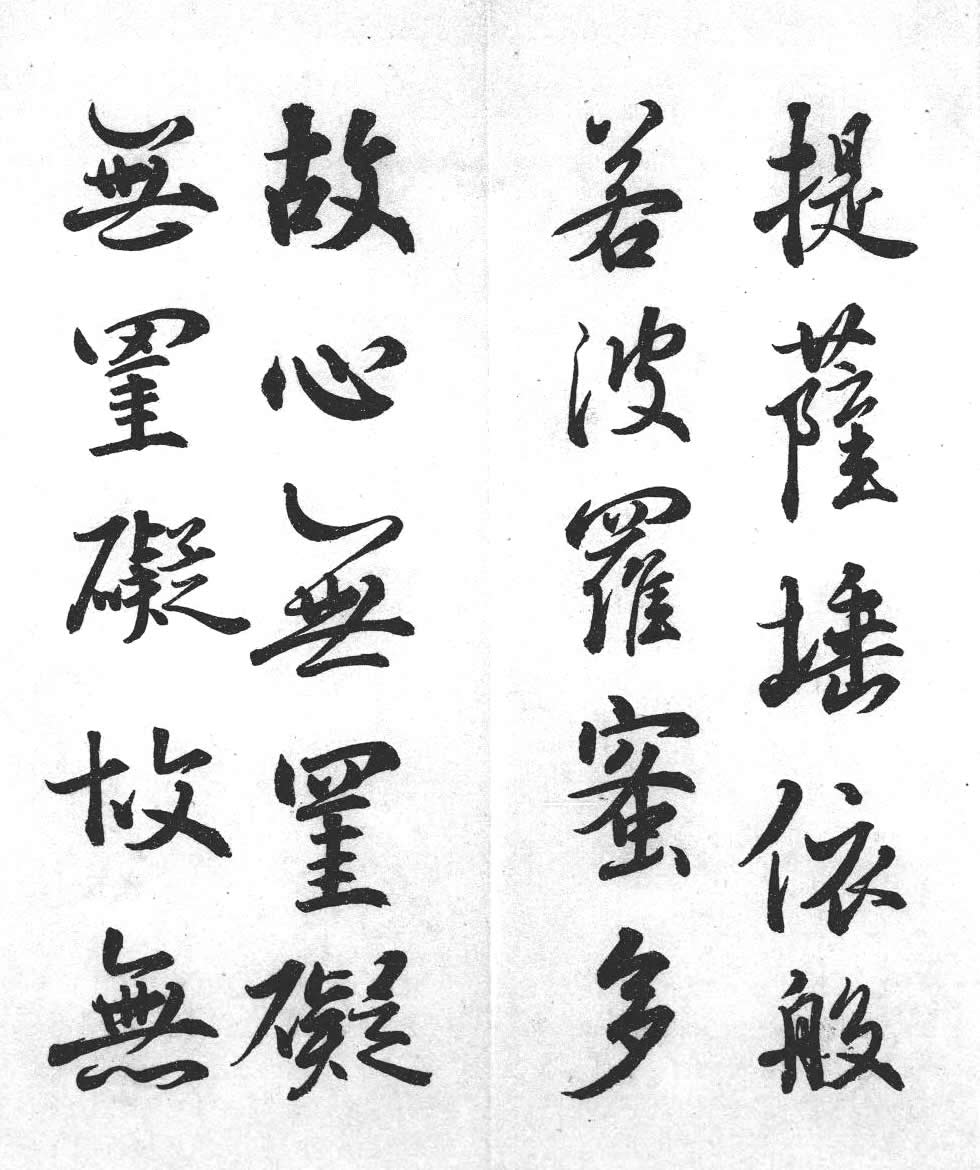 提薩埵依般
若波羅蜜多
故心無罣礙
無罣礙故無